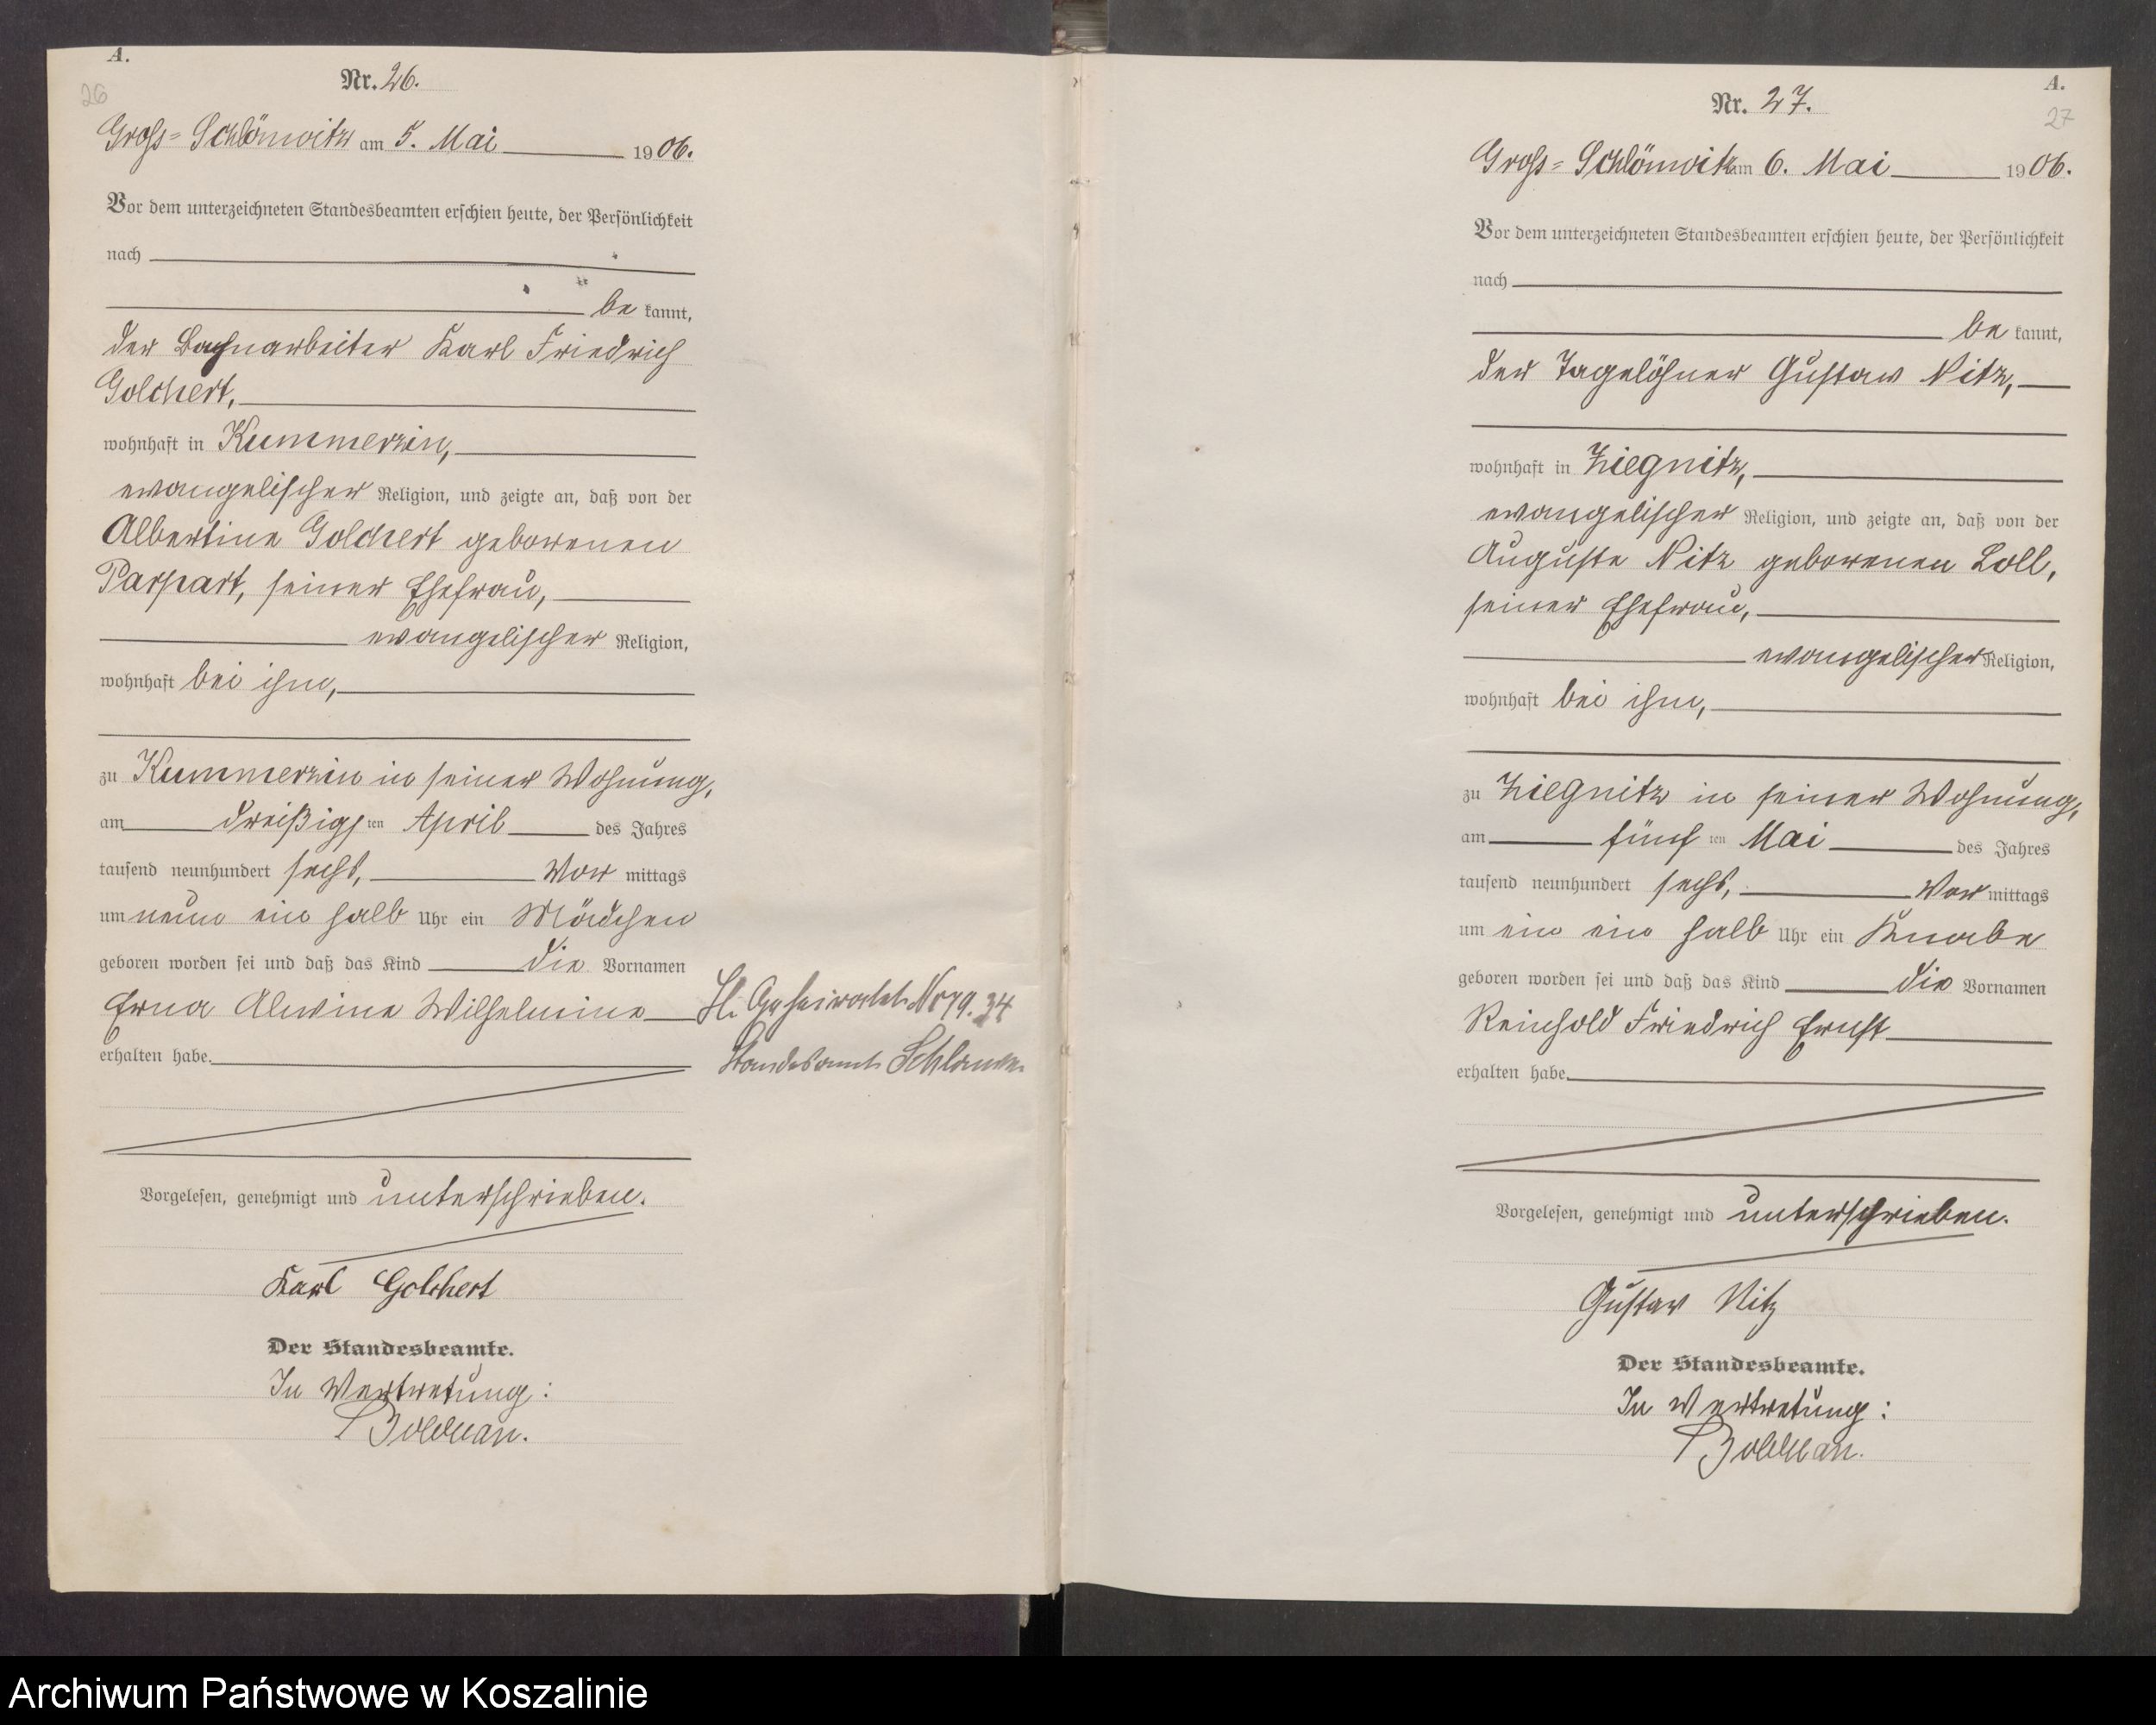 A.
26
Nr. 26.
Gross-Schlönwitz am 5. Mai 1906.
Vor dem unterzeichneten Standesbeamten erschien heute, der Persönlichkeit
nach
be kannt,
der Bahnarbeiter Karl Friedrich
Golchert,
wohnhaft in Kummerzin,
evangelischer Religion, und zeigte an, daß von der
Albertine Golchert geborenen
Parpart, seiner Ehefrau,
evangelischer Religion,
wohnhaft bei ihm,
zu Kummerzin in seiner Wohnung,
am dreißigs ten April des Jahres
tausend neunhundert sechs, Vor mittags
um neun ein halb Uhr ein Mädchen
geboren worden sei und daß das Kind die Vornamen
Erna Alwine Wilhelmine
erhalten habe.
geheiratet Nr 19. 34
Standesamt Schlawe
Vorgelesen, genehmigt und unterschrieben.
Karl Golchert
Der Standesbeamte.
In Vertretung:
Bolduan.
A.
27
Nr. 27.
Gross-Schlönwitz am 6. Mai 1906.
Vor dem unterzeichneten Standesbeamten erschien heute, der Persönlichkeit
nach
be kannt,
der Tagelöhner Gustav Nitz,
wohnhaft in Ziegnitz,
evangelischer Religion, und zeigte an, daß von der
Auguste Nitz geborenen Loll,
seiner Ehefrau,
evangelischer Religion,
wohnhaft bei ihm,
zu Ziegnitz in seiner Wohnung,
am fünf ten Mai des Jahres
tausend neunhundert sechs, Vor mittags
um ein ein halb Uhr ein Knabe
geboren worden sei und daß das Kind die Vornamen
Reinhold Friedrich Ernst
erhalten habe.
Vorgelesen, genehmigt und unterschrieben.
Gustav Nitz
Der Standesbeamte.
In Vertretung:
Bolduan.
Archiwum Państwowe w Koszalinie